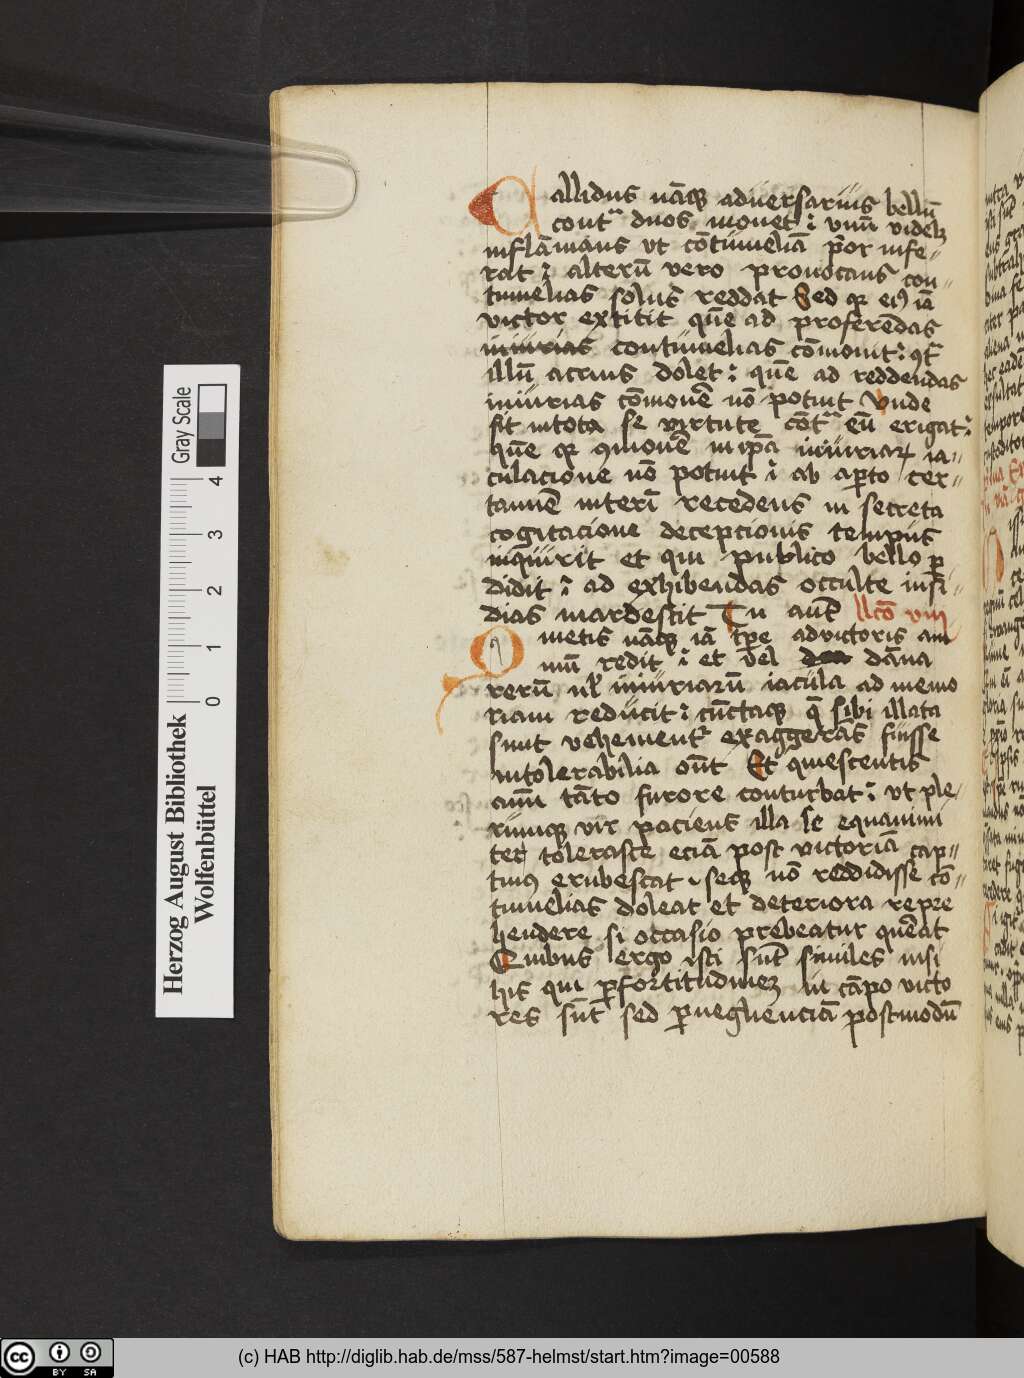 Callidus nāq3 aduersarius bellū
contra duos mouet : vnū videlz
inflāmans vt cōtumeliā prior infe-
rat : alterū vero prouocans con-
tumelias solus reddat Sed qr eiꝰ iā
victor extitit quē ad proferēdas
iniurias contumelias cōmouit :
illū acrius dolet : quē ad reddendas
iniurias cōmouē nō potuit Vnde
fit in tota se virtute cōtra eū erigat :
quē qr qmouē in ipā iniuriaꝝ ia-
culacione nō potuit : ab apto cer-
tamē interī recedens in secreta
cogitacione decepcionis tempus
inquirit et qui publico bello p
didit : ad exhibendas occulte insi-
dias inardescit Tu autē llcō viii
Quietis nāq3 iā tpe ad victoris ani
mū redit : et vel dāna
rerū ul iniuriarū iacula ad memo
riam reducit : cūctaq3 q̄ sibi illata
sunt vehementr exaggerās fuisse
intolerabilia oñt Et quiescentis
aīm tāto furore conturbat : vt ple-
rumq3 vir paciens illa se equanimi
ter tolerasse eciā post victoriā cap-
tiuꝰ erubescat seq3 nō reddidisse cō-
tumelias doleat et deteriora repre
hendere si occasio prebeatur queat
Quibus ergo isti sūt similes nisi
his qui p fortitudinez in cāpo victo
res sūt sed p negligenciā postmodū
Herzog August Bibliothek
Wolfenbüttel
Gray Scale
0 1 2 3 4
(c) HAB http://diglib.hab.de/mss/587-helmst/start.htm?image=00588
cc BY SA